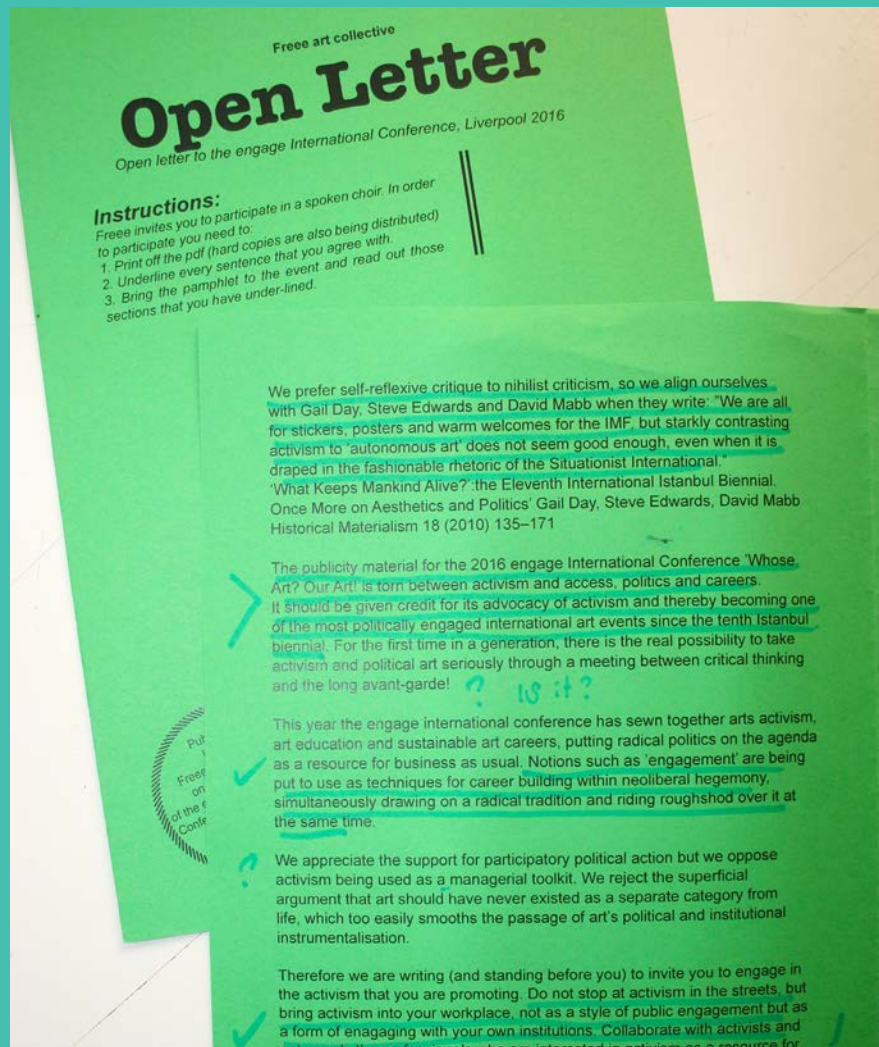 Freee art collective
Open Letter
Open letter to the engage International Conference, Liverpool 2016
Instructions:
Freee invites you to participate in a spoken choir. In order
to participate you need to:
1. Print off the pdf (hard copies are also being distributed)
2. Underline every sentence that you agree with.
3. Bring the pamphlet to the event and read out those
sections that you have under-lined.
We prefer self-reflexive critique to nihilist criticism, so we align ourselves
with Gail Day, Steve Edwards and David Mabb when they write: "We are all
for stickers, posters and warm welcomes for the IMF, but starkly contrasting
activism to 'autonomous art' does not seem good enough, even when it is
draped in the fashionable rhetoric of the Situationist International."
'What Keeps Mankind Alive?':the Eleventh International Istanbul Biennial.
Once More on Aesthetics and Politics' Gail Day, Steve Edwards, David Mabb
Historical Materialism 18 (2010) 135–171
The publicity material for the 2016 engage International Conference 'Whose
Art? Our Art! is torn between activism and access, politics and careers.
It should be given credit for its advocacy of activism and thereby becoming one
of the most politically engaged international art events since the tenth Istanbul
biennial. For the first time in a generation, there is the real possibility to take
activism and political art seriously through a meeting between critical thinking
and the long avant-garde! ? IS it?
This year the engage international conference has sewn together arts activism,
art education and sustainable art careers, putting radical politics on the agenda
as a resource for business as usual. Notions such as 'engagement' are being
put to use as techniques for career building within neoliberal hegemony,
simultaneously drawing on a radical tradition and riding roughshod over it at
the same time.
? We appreciate the support for participatory political action but we oppose
activism being used as a managerial toolkit. We reject the superficial
argument that art should have never existed as a separate category from
life, which too easily smooths the passage of art's political and institutional
instrumentalisation.
Therefore we are writing (and standing before you) to invite you to engage in
the activism that you are promoting. Do not stop at activism in the streets, but
bring activism into your workplace, not as a style of public engagement but as
a form of enagaging with your own institutions. Collaborate with activists and
Freee
on
of the